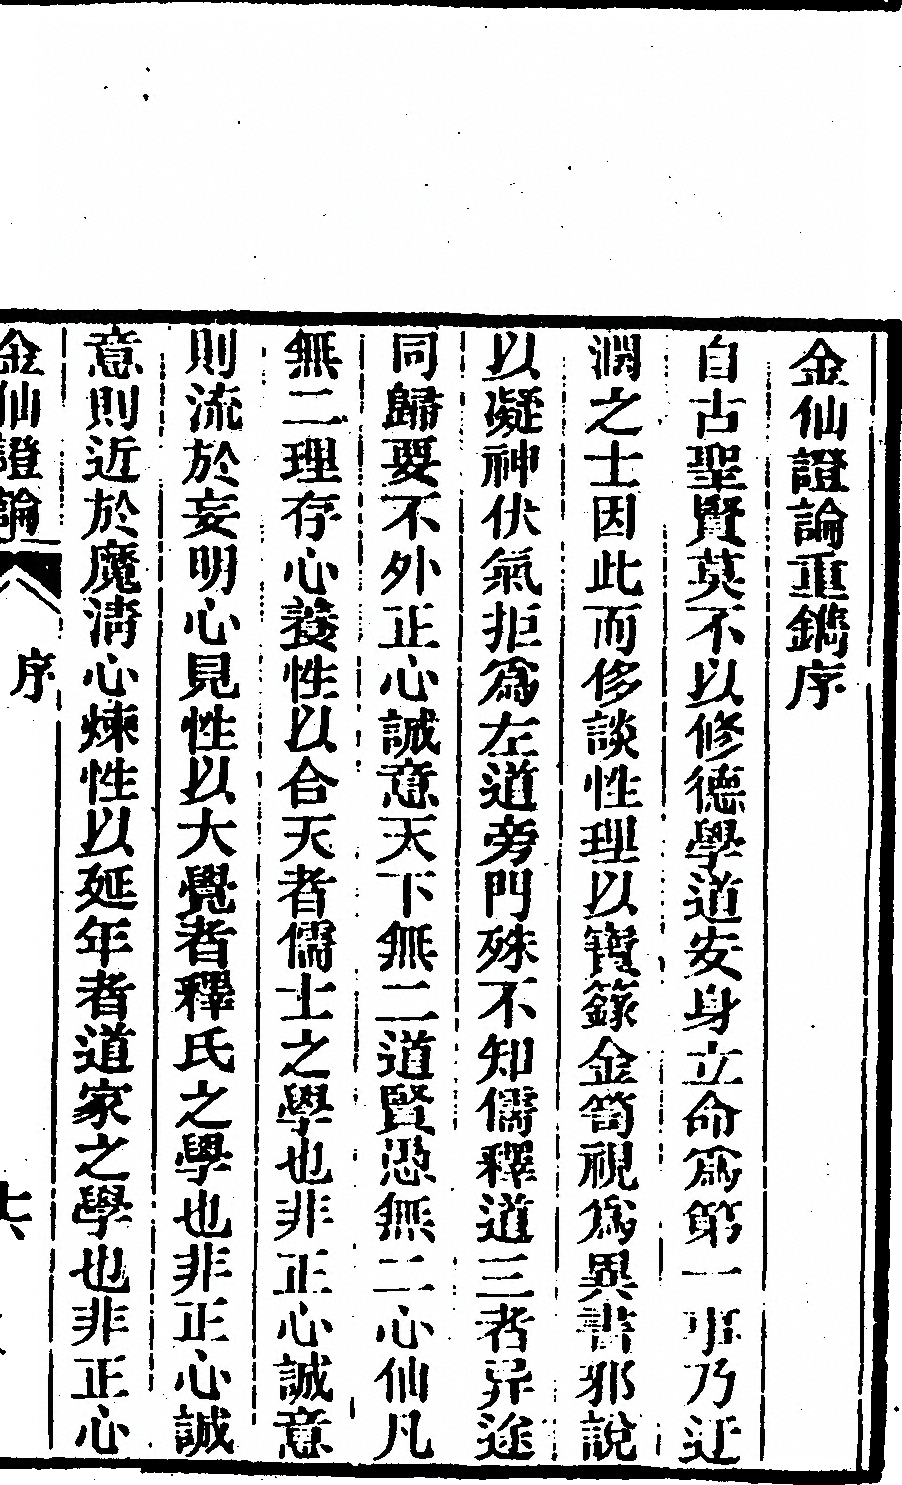 金仙證論重鐫序
自古聖賢莫不以修德學道安身立命爲第一事乃迂
濶之士因此而侈談性理以寶籙金笥視爲異書邪說
以凝神伏氣拒爲左道旁門殊不知儒釋道三者异途
同歸要不外正心誠意天下無二道賢愚無二心仙凡
無二理存心養性以合天者儒士之學也非正心誠意
則流於妄明心見性以大覺者釋氏之學也非正心誠
意則近於魔清心煉性以延年者道家之學也非正心
金仙證論
序